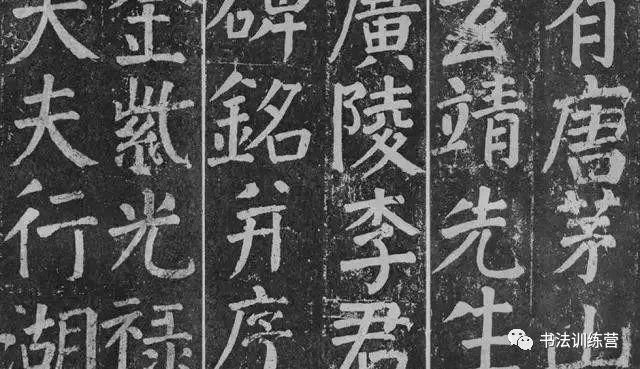 有唐茅山
玄靖先生
廣陵李君
碑銘并序
金紫光禄
大夫行湖
书法训练营